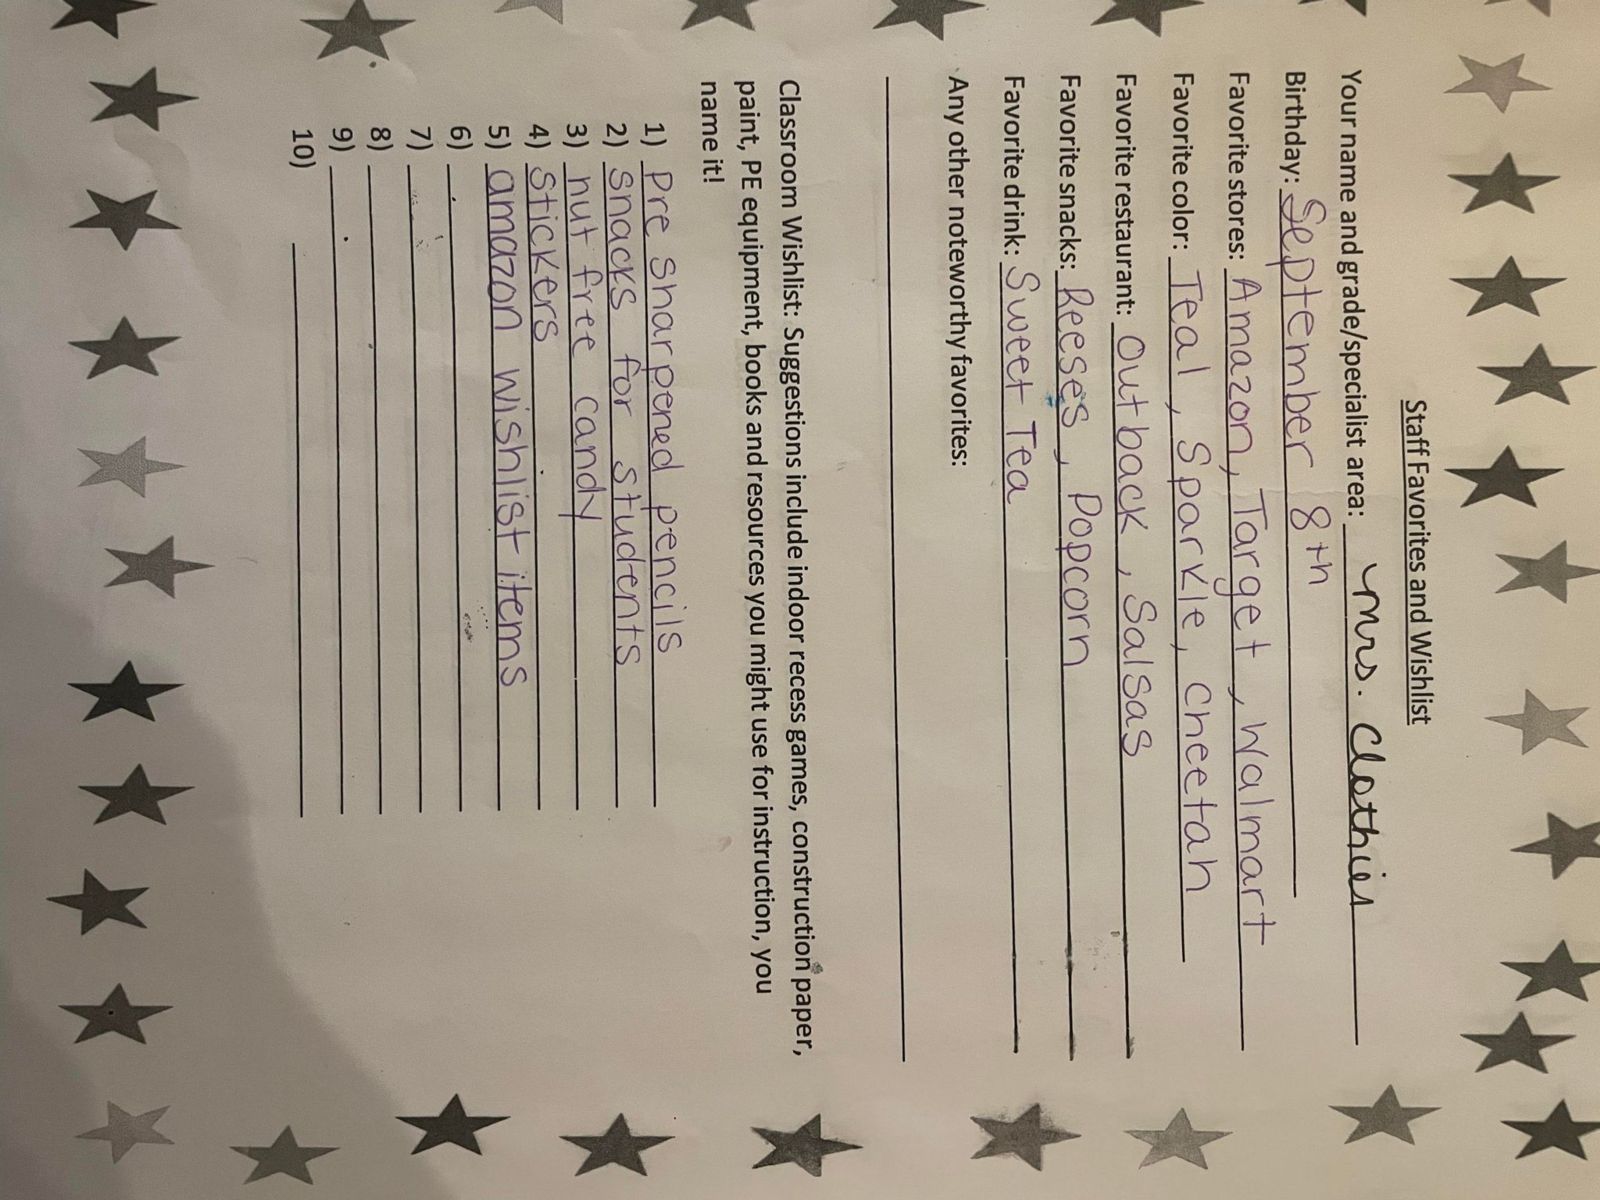 Staff Favorites and Wishlist
Your name and grade/specialist area: Mrs. Clothier
Birthday: September 8th
Favorite stores: Amazon, Target, Walmart
Favorite color: Teal, Sparkle, Cheetah
Favorite restaurant: Outback, Salsas
Favorite snacks: Reese's, Popcorn
Favorite drink: Sweet Tea
Any other noteworthy favorites:
Classroom Wishlist: Suggestions include indoor recess games, construction paper,
paint, PE equipment, books and resources you might use for instruction, you
name it!
1) Pre sharpened pencils
2) snacks for students
3) nut free candy
4) stickers
5) amazon wishlist items
6)
7)
8)
9)
10)